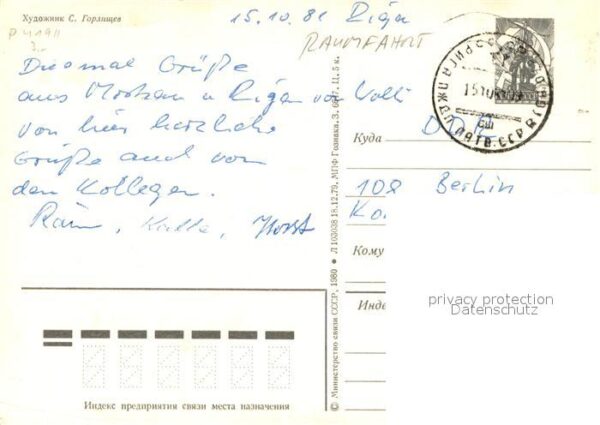 Художник С. Горлищев
15.10.81 Riga
P 41911
3.-
RAUMFAHRT
Diesmal Grüße
aus Moskau u Riga von Kolli
Von hier herzliche
Grüße auch von
den Kollegen.
Rain, Kalle, Horst
Куда DDR
108 Berlin
Ko.
Кому
Инде
privacy protection
Datenschutz
© Министерство связи СССР, 1980 • Л 103038 18.12.79. МПФ Гознака. З. 6 Ц. 5 к.
РИГА ПЖДП ЛАТВ.ССР
Индекс предприятия связи места назначения